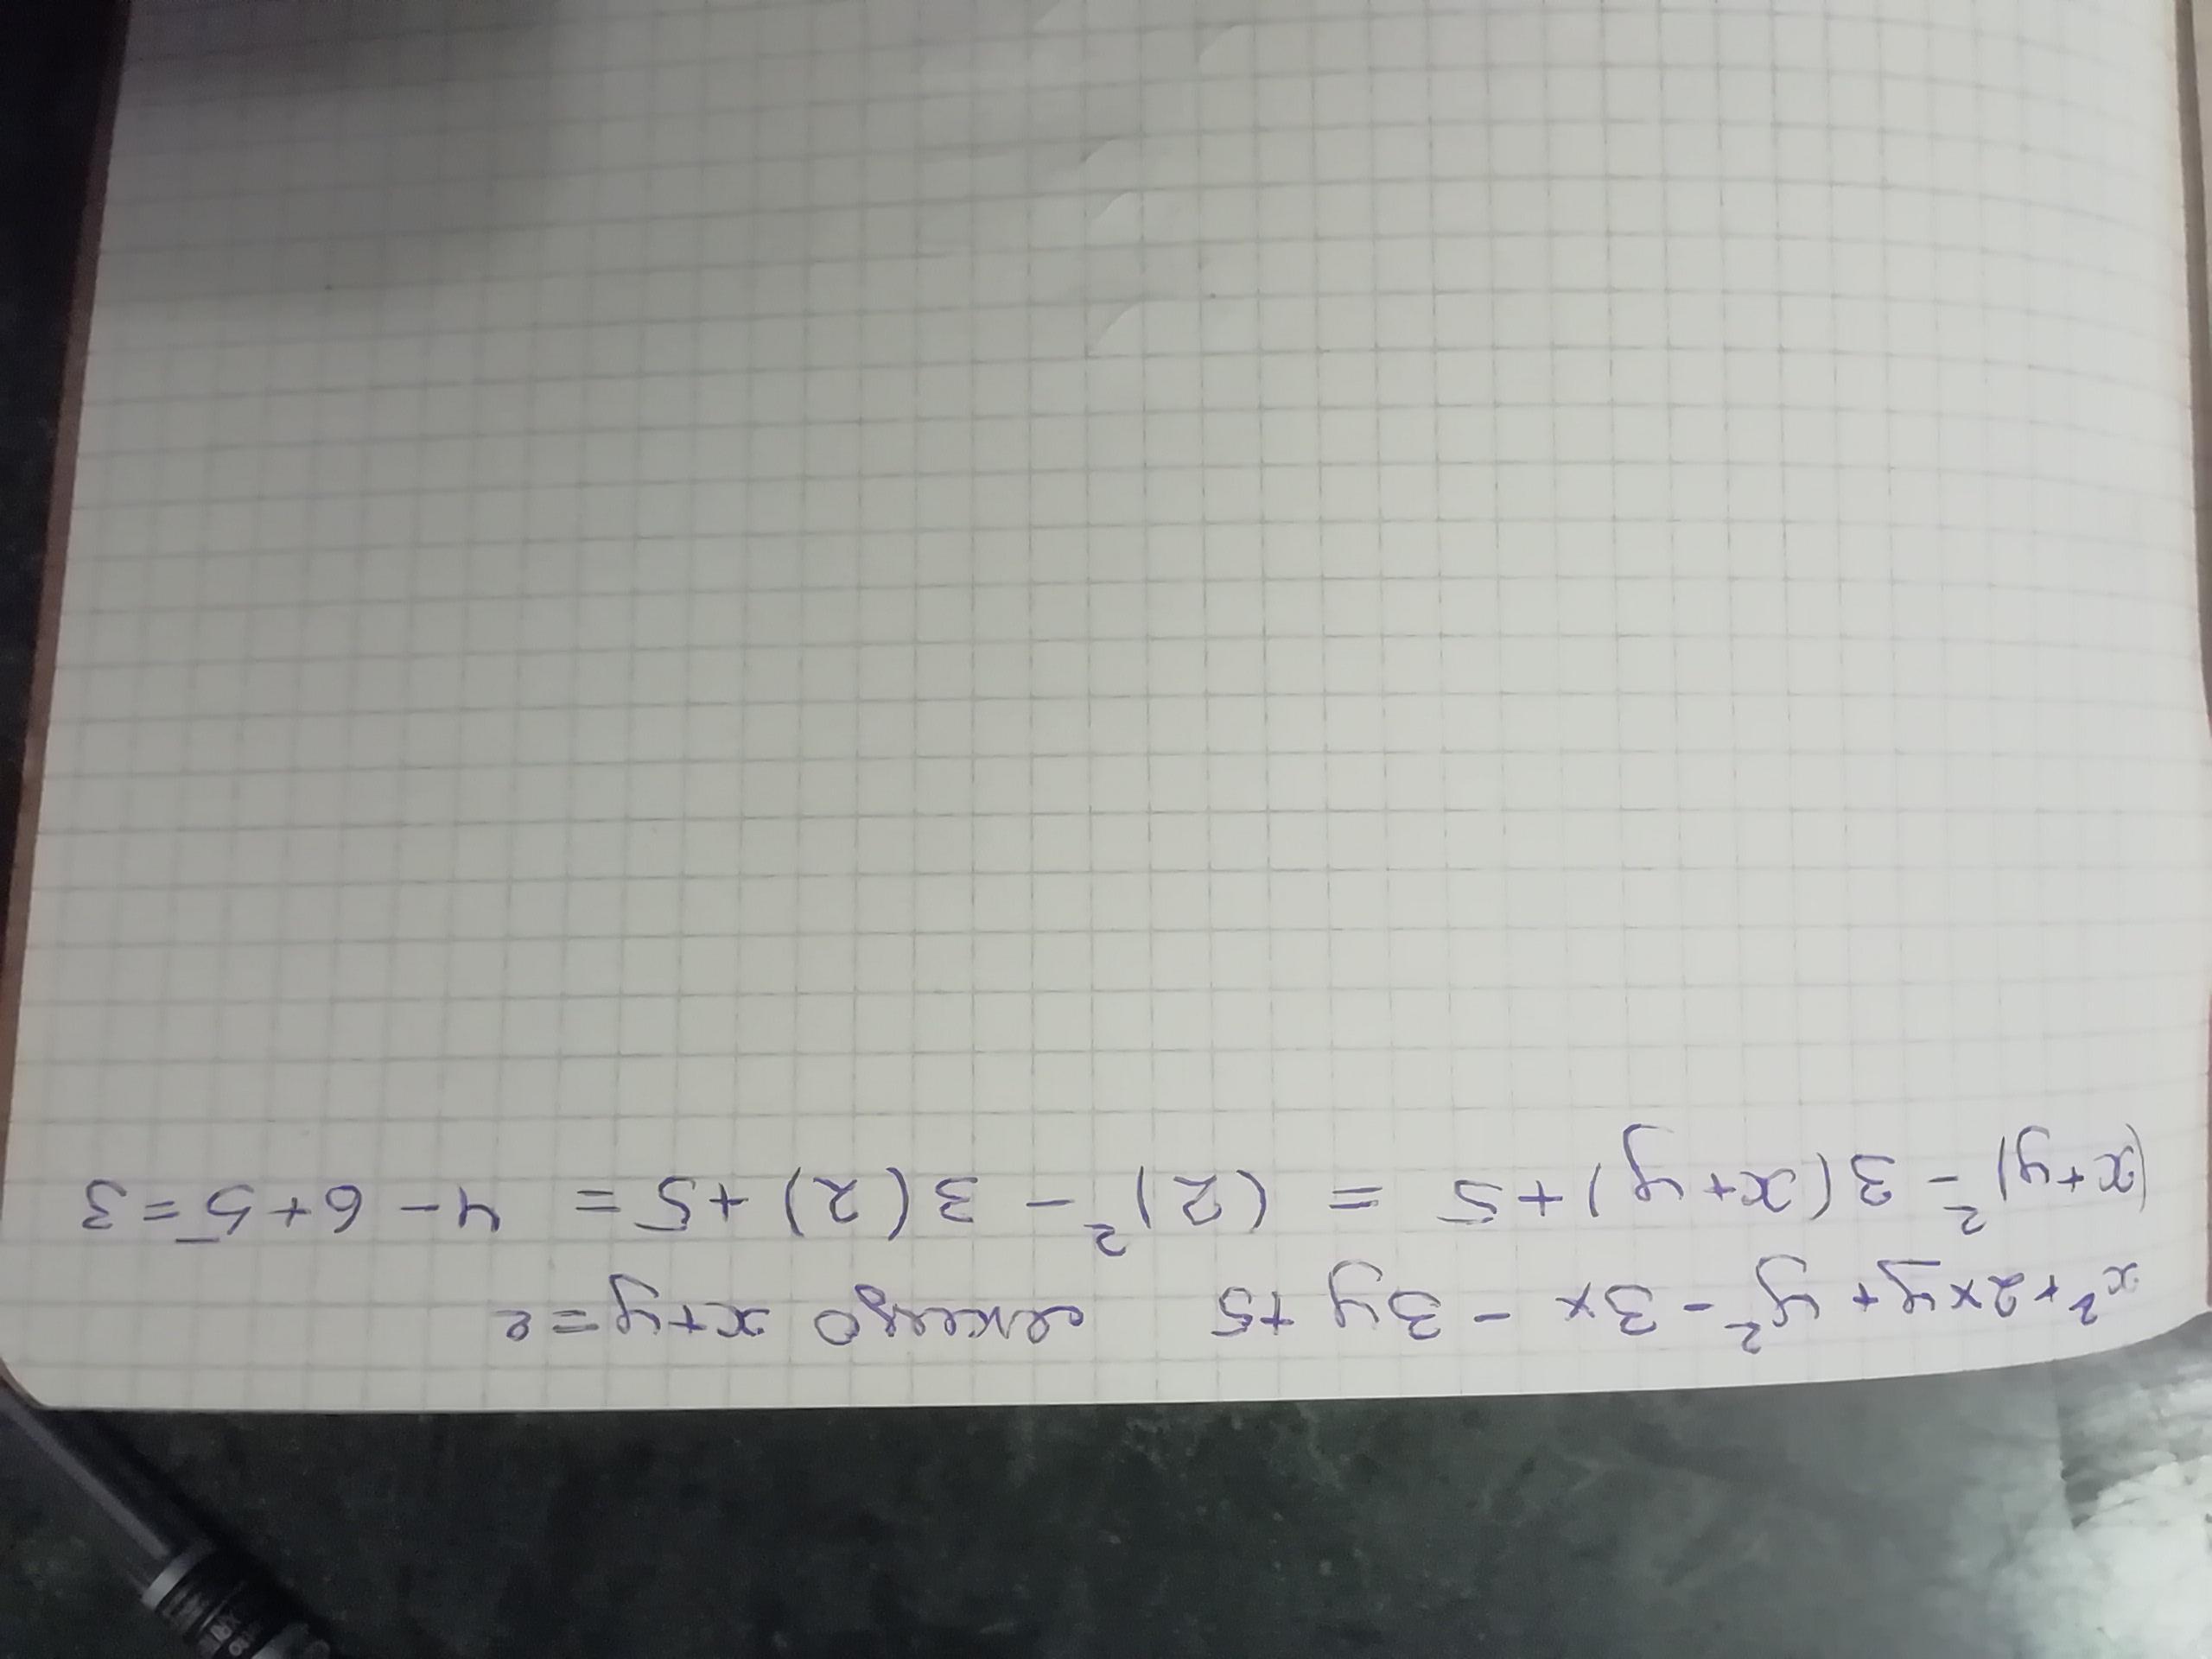 x² + 2xy + y² - 3x - 3y + 5 x + y = 2
(x+y)² - 3(x+y) + 5 = (2)² - 3(2) + 5 = 4 - 6 + 5 = 3